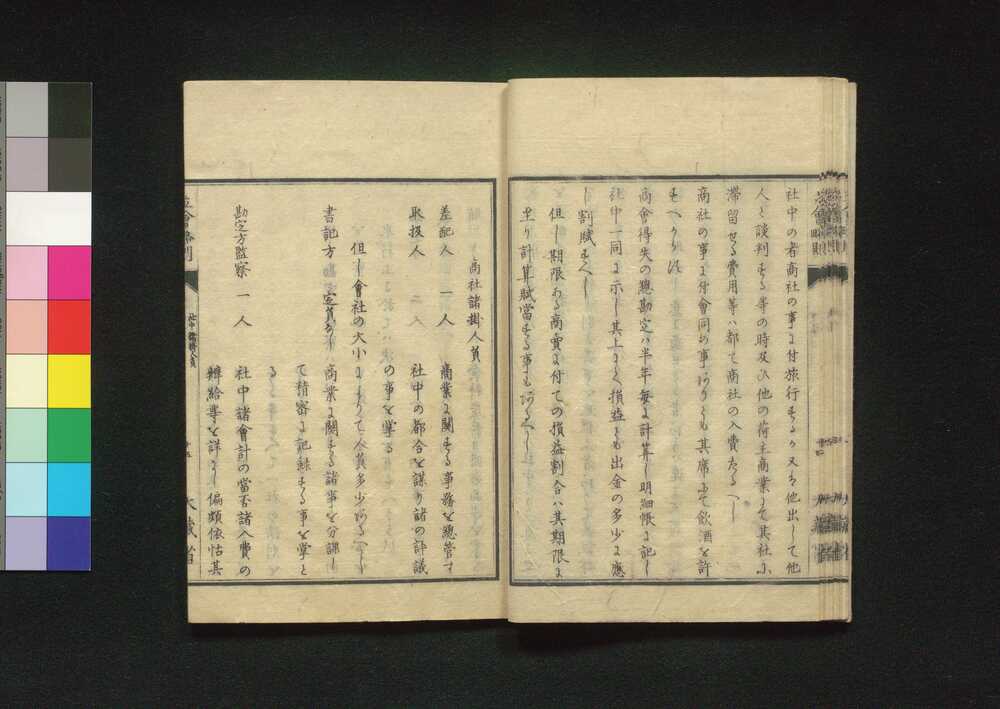 社中の者商社の事に付旅行するか又は他出して他
人と談判する等の時及ひ他の荷主商業にて其社に
滞留せる費用等ハ都て商社の入費たるへし
商社の事に付會同の事ありとも其席にて飲酒を許
すへからす
商會得失の總勘定ハ半年毎に計算し明細帳に記し
社中一同に示し其上にて損益とも出金の多少に應
し割賦すへし
但し期限ある商賣に付ての損益割合ハ其期限に
至り計算賦當する事もあるへし
商社諸掛人員
差配人 一人 商業に關する事務を總管す
取扱人 二人 社中の都合を謀り諸の評議
の事を掌る
但し會社の大小によりて人員多少あるへし
書記方 定員なし 商業に關する諸事を分課し
て精審に記録する事を掌と
る
勘定方監察 一人 社中諸會計の當否諸入費の
辨給等を詳にし偏頗依怙其
立會略則
社中諸掛人員
大藏省